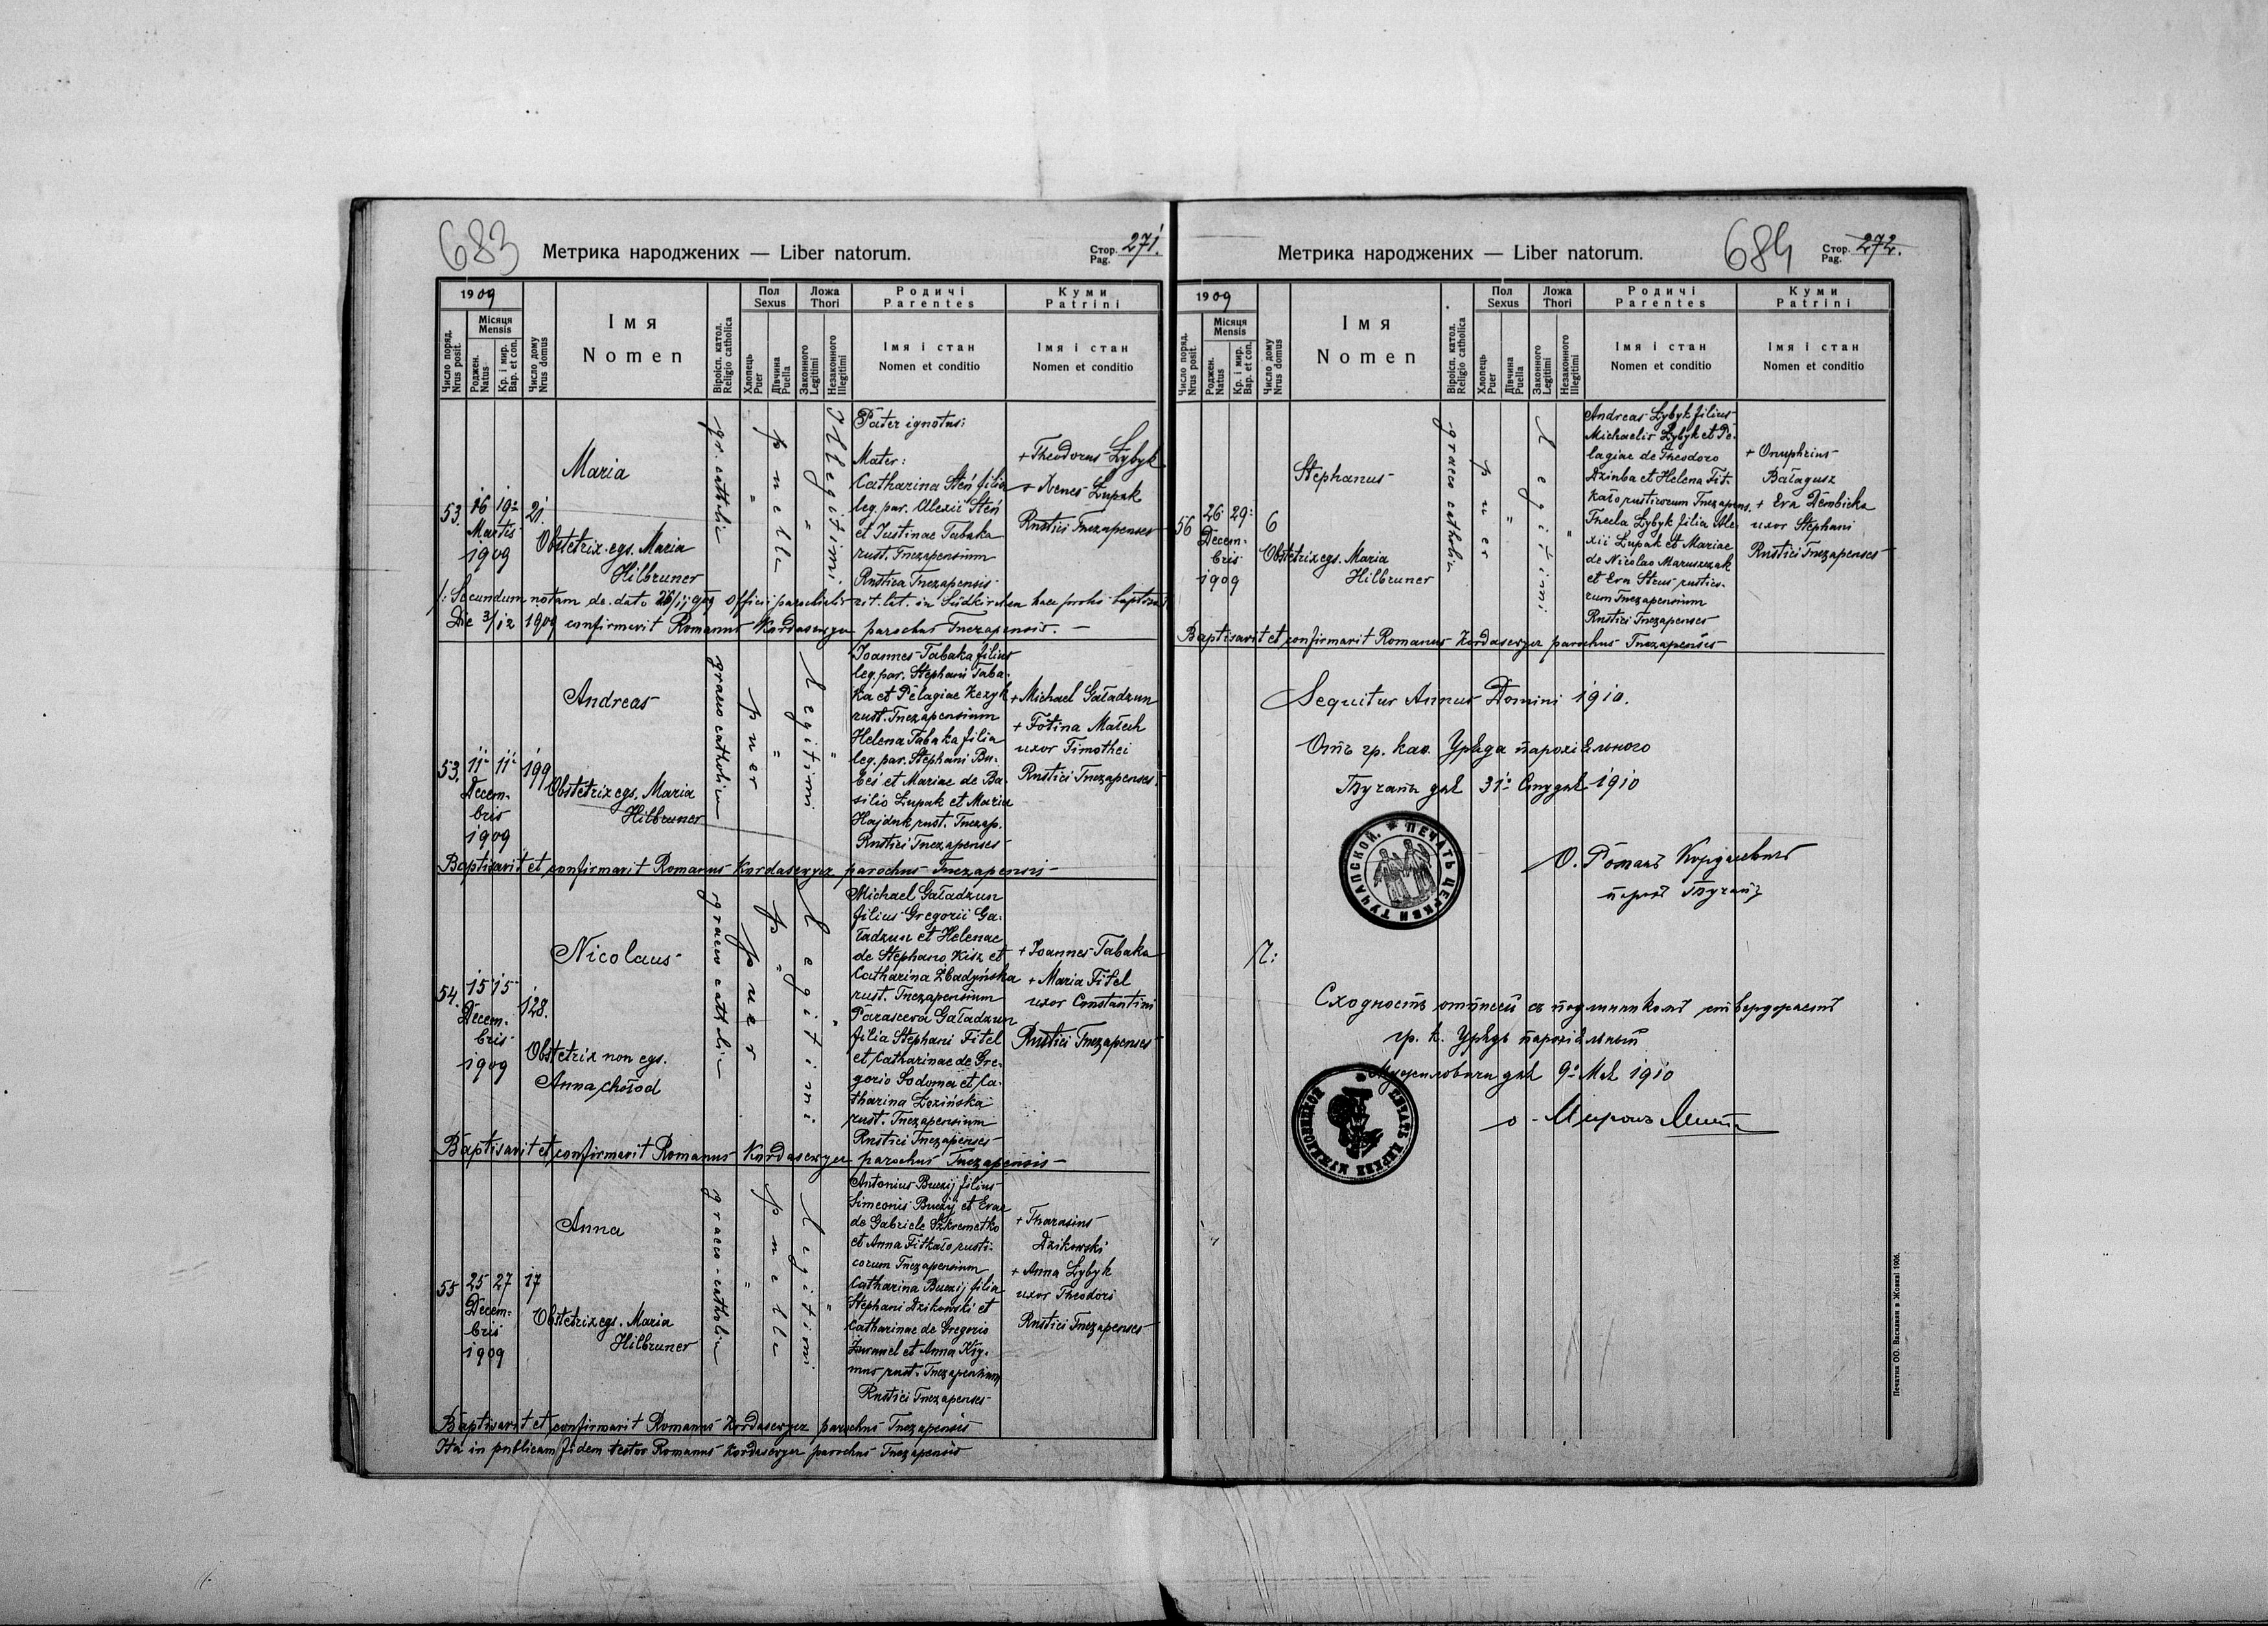 683
Метрика народжених — Liber natorum.
Стор. Pag. 271.
1909
Число поряд. Nrus posit.
Місяця Mensis
Роджен. Natus
Кр. і мир. Bap. et con.
Число дому Nrus domus
Імя
Nomen
Віроісп. катол. Religio catholica
Пол Sexus
Хлопець Puer
Дівчина Puella
Ложа Thori
Законного Legitimi
Незаконного Illegitimi
Родичі
Parentes
Імя і стан
Nomen et conditio
Куми
Patrini
Імя і стан
Nomen et conditio
53.
16 19
Martis
1909
21.
Maria
Obstetrix egs. Maria
Hilbruner
gr. catholica
"
puella
"
Illegitimi
Pater ignotus:
Mater:
Catharina Steń filia
leg. par. Alexii Steń
et Justinae Tabaka
rust. Tuczapensium
Rustica Tuczapensis
+ Theodorus Łybyk
+ Łupak
Rustici Tuczapenses
/: Secundum notam de dato officii parochialis rit. lat. in Südkirchen haec proles baptisata
Die 3/12 1909 confirmavit Romanus Kordasewycz parochus Tuczapensis. —
53.
11 11
Decem-
bris
1909
199
Andreas
Obstetrix egs. Maria
Hilbruner
graeco catholica
puer
"
Legitimi
"
Joannes Tabaka filius
leg. par. Stephani Taba-
ka et Pelagiae Kezyk
rust. Tuczapensium
Helena Tabaka filia
leg. par. Stephani Bu-
beś et Mariae de Ba-
silio Łupak et Maria
Hajduk rust. Tuczap.
Rustici Tuczapenses
+ Michael Gaładzun
+ Fotina Małech
uxor Timothei
Rustici Tuczapenses
Baptisavit et confirmavit Romanus Kordasewycz parochus Tuczapensis
54.
15 15
Decem-
bris
1909
128.
Nicolaus
Obstetrix non egs.
Anna Chołod
graeco catholica
puer
"
Legitimi
"
Michael Gaładzun
filius Gregorii Ga-
ładzun et Helenae
de Stephano Kisz et
Catharina Zbadyńska
rust. Tuczapensium
Parasceva Gaładzun
filia Stephani Fitel
et Catharinae de Gre-
gorio Sodoma et Ca-
tharina Łozińska
rust. Tuczapensium
Rustici Tuczapenses
+ Joannes Tabaka
+ Maria Fitel
uxor Constantini
Rustici Tuczapenses
Baptisavit et confirmavit Romanus Kordasewycz parochus Tuczapensis
55
25 27
Decem-
bris
1909
17
Anna
Obstetrix egs. Maria
Hilbruner
graeco-catholica
"
puella
Legitimi
"
Antonius Buczij filius
Simeonis Buczij et Evae
de Gabriele Szkremetko
et Anna Fitkało rusti-
corum Tuczapensium
Catharina Buczij filia
Stephani Dzikowski et
Catharinae de Gregorio
et Anna Kry-
mus rust. Tuczapensium
Rustici Tuczapenses
+ Tharasius
Dzikowski
+ Anna Łybyk
uxor Theodori
Rustici Tuczapenses
Baptisavit et confirmavit Romanus Kordasewycz parochus Tuczapensis
Ita in publicam fidem testor Romanus Kordasewycz parochus Tuczapensis
684
Метрика народжених — Liber natorum.
Стор. Pag. 272.
1909
Число поряд. Nrus posit.
Місяця Mensis
Роджен. Natus
Кр. і мир. Bap. et con.
Число дому Nrus domus
Імя
Nomen
Віроісп. катол. Religio catholica
Пол Sexus
Хлопець Puer
Дівчина Puella
Ложа Thori
Законного Legitimi
Незаконного Illegitimi
Родичі
Parentes
Імя і стан
Nomen et conditio
Куми
Patrini
Імя і стан
Nomen et conditio
56
26 29
Decem-
bris
1909
6
Stephanus
Obstetrix egs. Maria
Hilbruner
graeco catholica
puer
"
Legitimi
"
Andreas Łybyk filius
Michaelis Łybyk et Pe-
lagiae de Theodoro
Dziuba et Helena Fit-
kało rusticorum Tuczapens.
Thecla Łybyk filia Ale-
xii Łupak et Mariae
de Nicolao Maruszczak
et Eva Steus rustico-
rum Tuczapensium
Rustici Tuczapenses
+ Onuphrius
Bałagusz
+ Eva Dembicka
uxor Stephani
Rustici Tuczapenses
Baptisavit et confirmavit Romanus Kordasewycz parochus Tuczapensis
Sequitur Annus Domini 1910.
Отъ гр. кат. Уряда парохіяльного
Тучапы дня 31 Студня 1910
ПЕЧАТЬ ЦЕРКВИ ТУЧАПСКОЙ.
О. Романъ Кордасевичъ
парох Тучапъ
Л:
Сходность отписи съ подлинникомъ потверджаетъ
гр. к. Урядъ парохіяльный
Мужиловичи дня 9 Мая 1910
о. Миронъ
Печатня ОО. Василиян в Жовкві 1906.